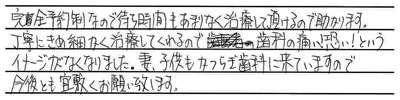 完全予約制なので待ち時間もあまりなく治療して頂けるので助かります。
丁寧にきめ細かく治療してくれるので歯科の痛い!恐い!という
イメージがなくなりました。妻、子供もカワラギ歯科に来ていますので
今後とも宜敷くお願い致します。